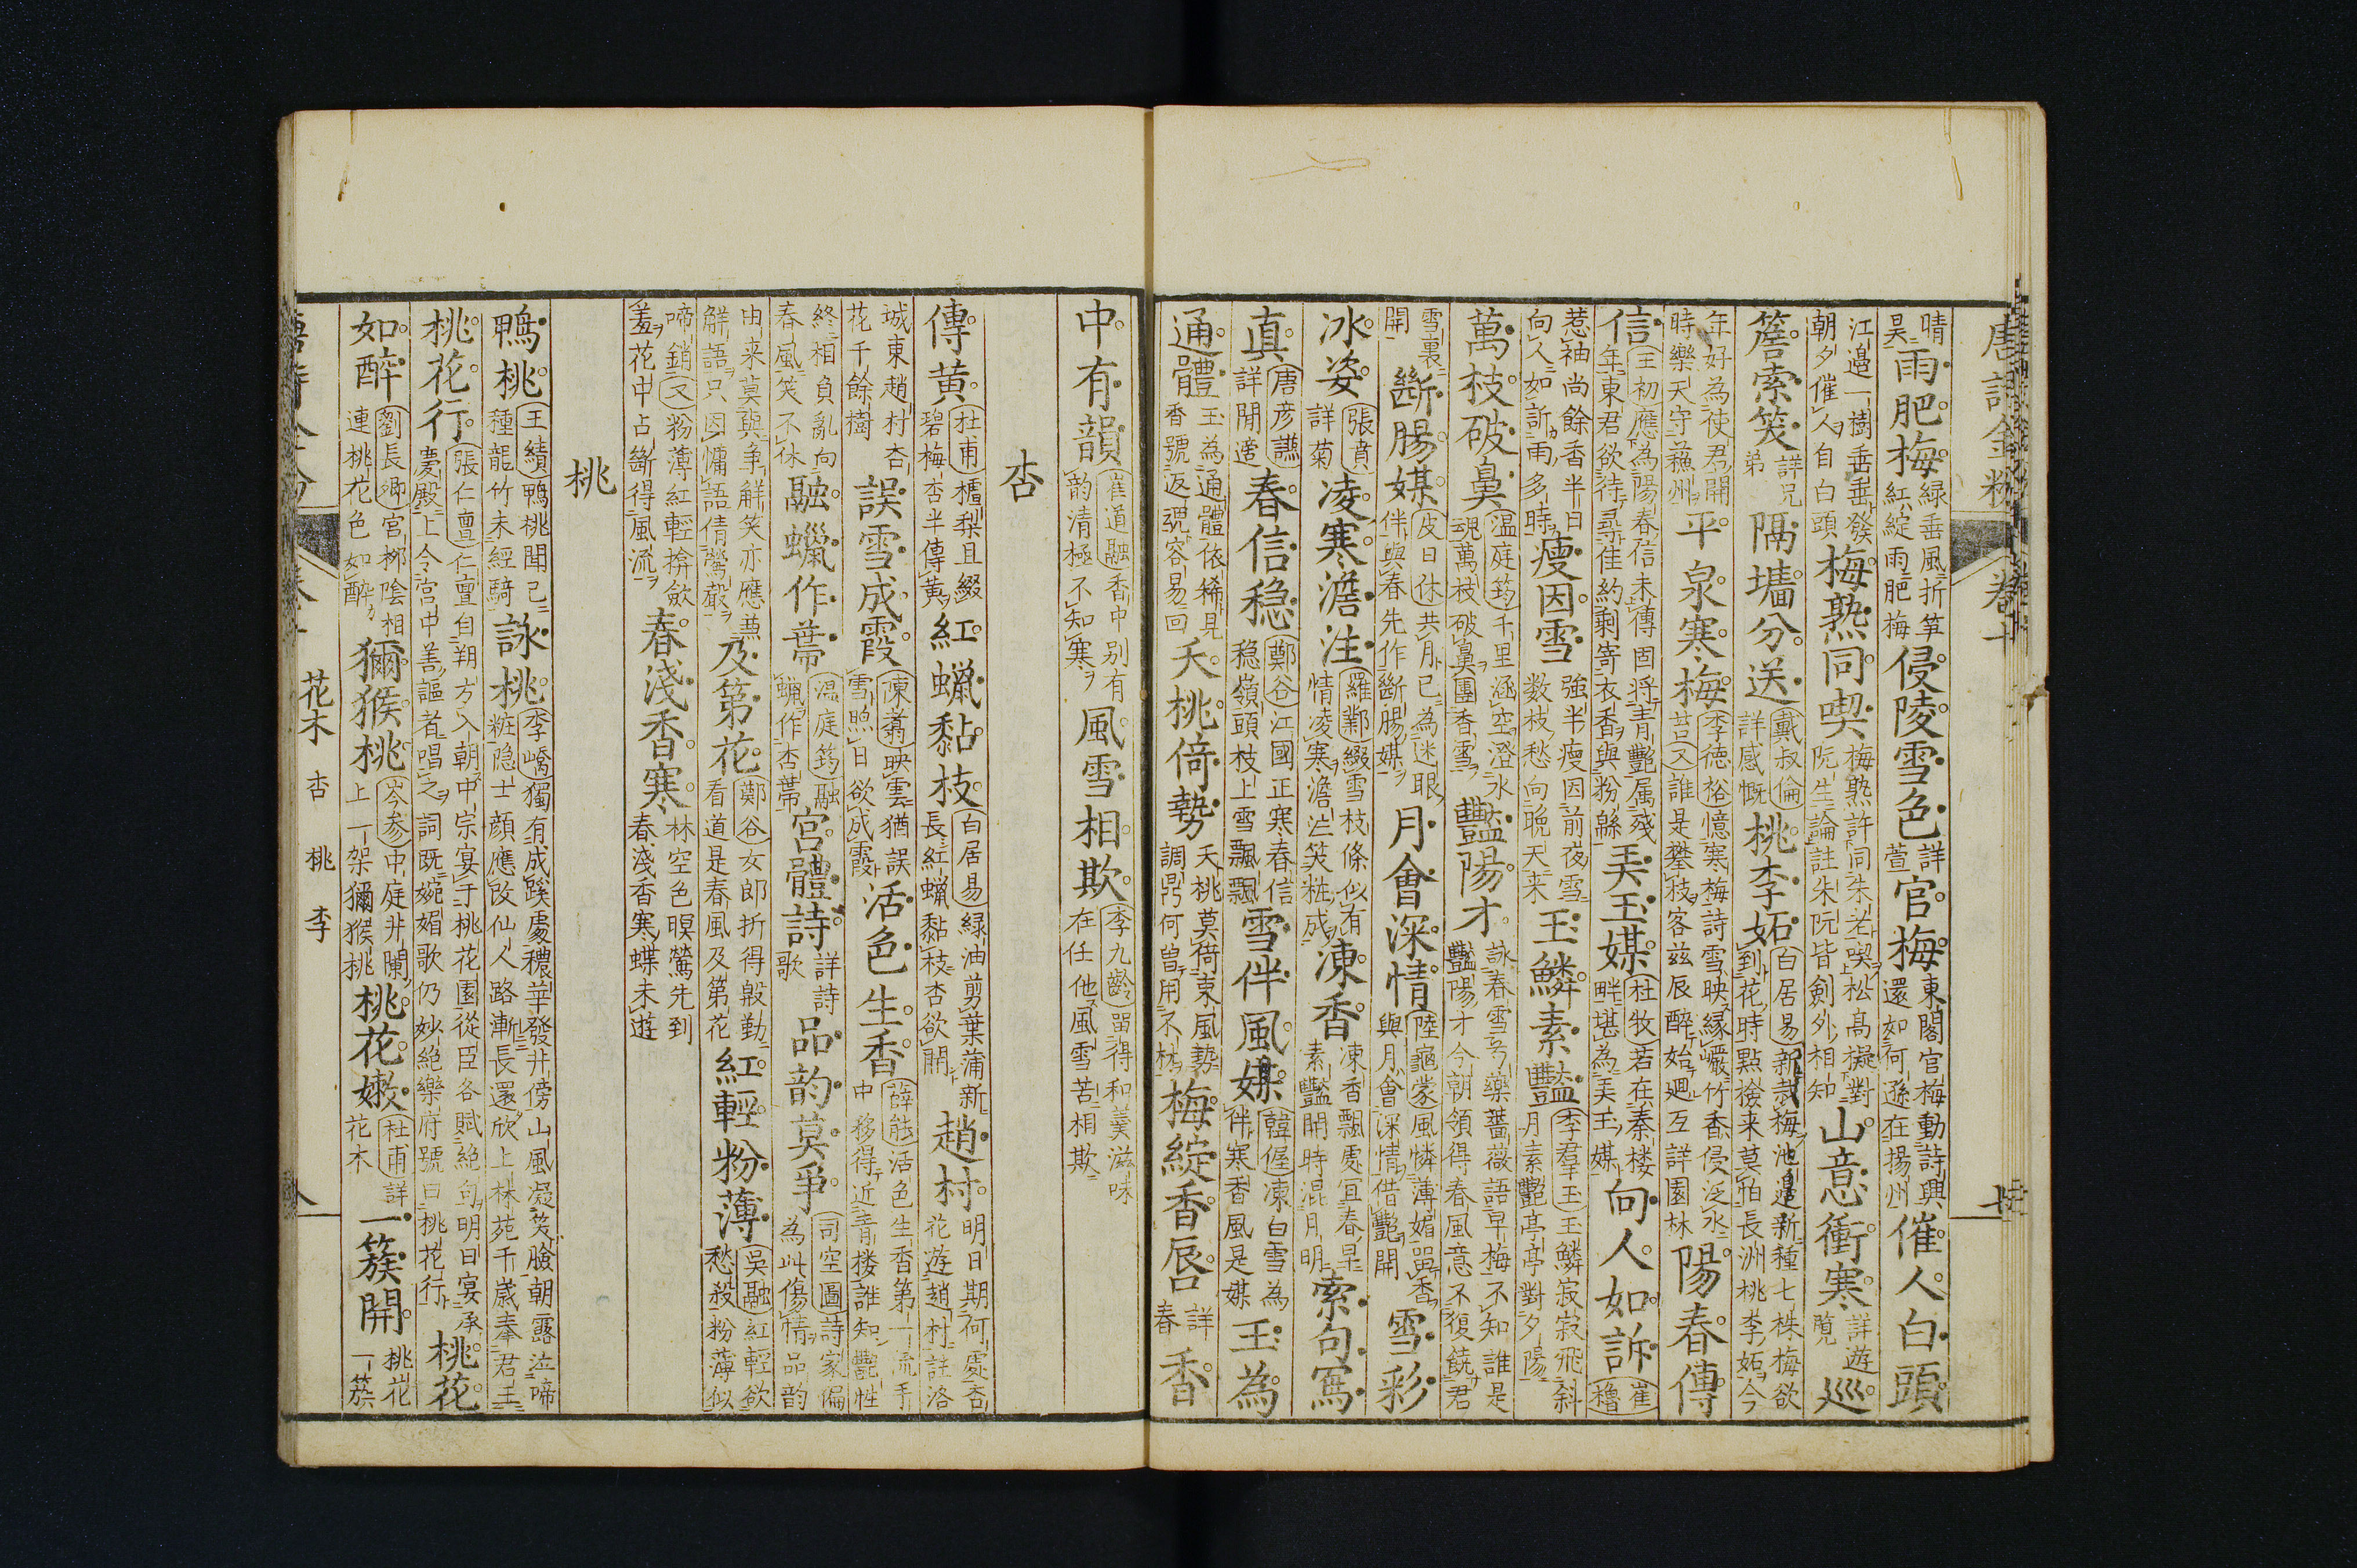 唐詩金粉 卷十
晴昊雨肥梅綠垂風折笋紅綻雨肥梅侵陵雪色詳萱官梅東閣官梅動詩興還如何遜在揚州催人白頭
江邊一樹垂垂發朝夕催人自白頭梅熟同喫梅熟許同朱老喫松高擬對阮生論註朱阮皆劍外相知山意衝寒詳遊覧巡
簷索笑詳兄弟隔墻分送戴叔倫詳感慨桃李妬白居易新栽梅池邊新種七株梅欲到花時點撿来莫怕長洲桃李妬今
年好為使君開時樂天守蘇州平泉寒梅李徳裕憶寒梅詩雪映縁巖竹香侵泛水苔又誰是攀枝客茲辰醉始廻互詳園林陽春傳
信王初應為陽春信未傳固将青艷属殘年東君欲待尋佳約剩寄衣香與粉緜美玉媒杜牧若在秦楼畔堪為美玉媒向人如訴崔櫓
惹袖尚餘香半日向人如訴雨多時瘦因雪強半瘦因前夜雪数枝愁向晩天来玉鱗素豔李羣玉玉鱗寂寂飛斜月素艷亭亭對夕陽
萬枝破鼻温庭筠千里涵空澄水魂萬枝破鼻團香雪豔陽才詠春雪号藥薔薇語早梅不知誰是豔陽才今朝領得春風意不復饒君
雪裏開斷腸媒皮日休共月已為迷眼伴與春先作斷腸媒月會深情陸龜蒙風憐薄媚㽞香與月會深情借艷開雪彩
冰姿張賁詳菊凌寒澹注羅鄴綴雪枝條似有情凌寒澹注笑粧成凍香凍香飄處宜春早素豔開時混月明索句寫
真唐彦謙詳閒適春信穏鄭谷江國正寒春信穏嶺頭枝上雪飄飄雪伴風媒韓偓凍白雪為伴寒香風是媒玉為
通體玉為通體依稀見香號返魂容易回夭桃倚勢夭桃莫倚東風勢調鼎何曽用不材梅綻香唇詳春香
中有韻崔道融香中别有韵清極不知寒風雪相欺李九齡㽞得和羹滋味在任他風雪苦相欺
杏
傳黄杜甫櫨梨且綴碧梅杏半傳黄紅蠟黏枝白居易緑油剪葉蒲新長紅蝋黏枝杏欲開趙村明日期何處杏花遊趙村註洛
城東趙村杏花千餘樹誤雪成霞陳翥映雲猶誤雪煦日欲成霞活色生香薛能活色生香第一流手中移得近青楼誰知艷性
終相負亂向春風笑不休融蠟作蔕温庭筠融蝋作杏蔕宮體詩詳詩歌品韵莫爭司空圖詩家偏為此傷情品韵
由来莫與争解笑亦應兼解語只因慵語倩鶯聲及第花鄭谷女郎折得殷勤看道是春風及第花紅輕粉薄吳融紅輕欲愁殺粉薄似
啼銷又粉薄紅輕揜斂羞花中占斷得風流春淺香寒林空色暝鶯先到春淺香寒蝶未遊
桃
鴨桃王績鴨桃聞已種龍竹未經騎詠桃李嶠獨有成蹊處穠華發井傍山風凝笑臉朝露泣啼粧隐士顔應改仙人路漸長還欣上林苑千歳奉君王
桃花行張仁亶仁亶自朔方入朝中宗宴于桃花園從臣各賦絶句明日宴承慶殿上令宮中善謳者唱之詞既婉媚歌仍妙絶樂府號曰桃花行桃花
如醉劉長卿宮柳陰相連桃花色如醉獼猴桃岑参中庭井闌上一架獼猴桃桃花嫩杜甫詳花木一簇開桃花一簇
花木 杏 桃 李